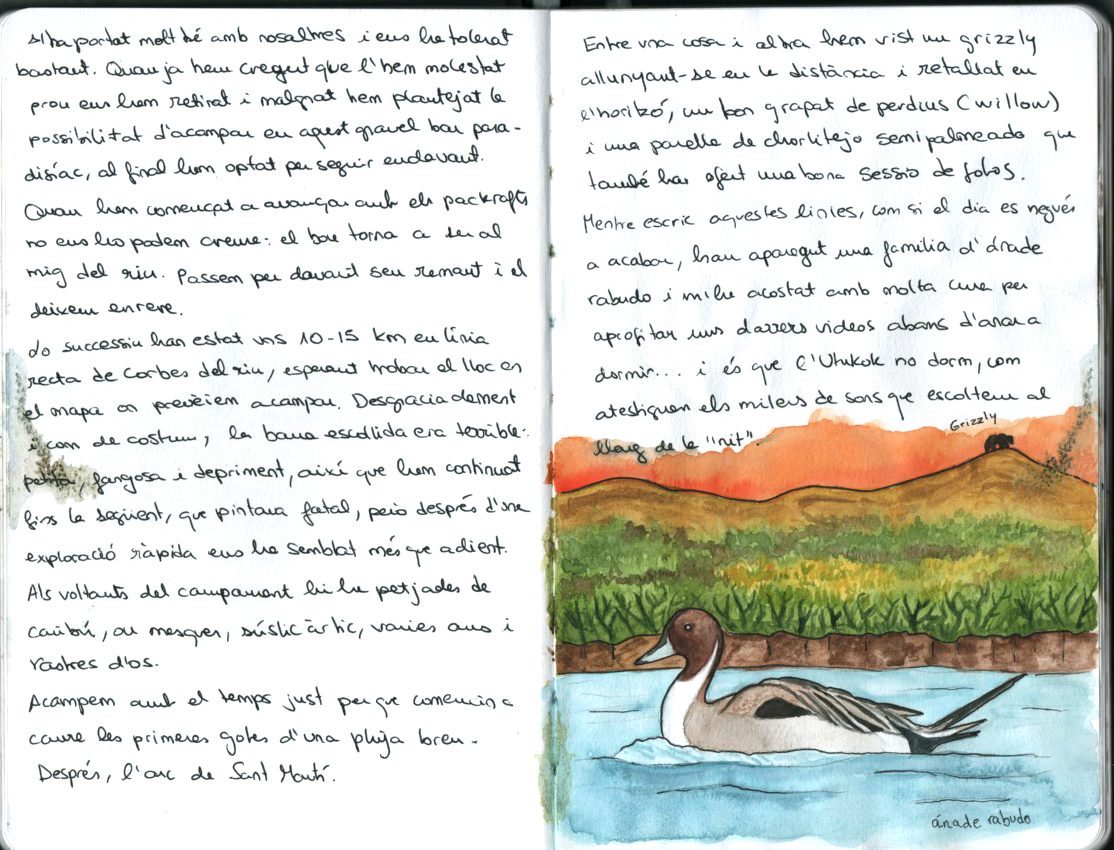 s'ha portat molt bé amb nosaltres i ens ha tolerat
bastant. Quan ja hem cregut que l'hem molestat
prou ens hem retirat i malgrat hem plantejat la
possibilitat d'acampar en aquest gravel bar para-
disíac, al final hem optat per seguir endavant.
Quan hem començat a avançar amb els packrafts
no ens ho podem creure: el bou torna a ser al
mig del riu. Passem per davant seu remant i el
deixem enrere.
Lo successiu han estat uns 10-15 km en línia
recta de corbes del riu, esperant trobar el lloc on
el mapa on prevèiem acampar. Desgraciadament
i com de costum, la barra escollida era terrible:
petita, fangosa i depriment, així que hem continuat
fins la següent, que pintava fatal, però després d'una
exploració ràpida ens ha semblat més que adient.
Als voltants del campament hi ha petjades de
caribú, ou mesquer, súslic àrtic, varies aus i
rastres d'os.
Acampem amb el temps just perque comencin a
caure les primeres gotes d'una pluja breu.
Després, l'arc de Sant Martí.
Entre una cosa i altra hem vist un grizzly
allunyant-se en la distància i retallat en
l'horitzó, un bon grapat de perdius (willow)
i una parella de chorlitejo semipalmeado que
també han ofert una bona sessio de fotos.
Mentre escric aquestes línies, com si el dia es negués
a acabar, han aparegut una familia d'ánade
rabudo i m'he acostat amb molta cura per
aprofitar uns darrers videos abans d'anar a
dormir... i és que l'Utukok no dorm, com
atestiguen els milers de sons que escoltem al
llarg de la "nit".
Grizzly
ánade rabudo